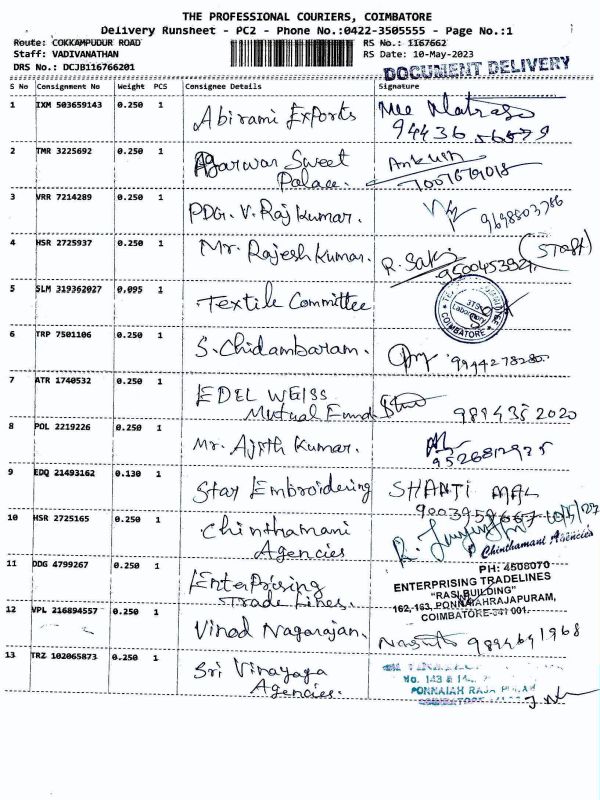 THE PROFESSIONAL COURIERS, COIMBATORE
Delivery Runsheet - PC2 - Phone No.:0422-3505555 - Page No.:1
Route: COKKAMPUDUR ROAD RS No.: 1167662
Staff: VADIVANATHAN RS Date: 10-May-2023
DRS No.: DCJB116766201 DOCUMENT DELIVERY
S No Consignment No Weight PCS Consignee Details Signature
1 IXM 503659143 0.250 1 Abirami Exports
94436 56579
2 TMR 3225692 0.250 1 Agarwar Sweet Ankush
Palace.
3 VRR 7214289 0.250 1 PDG. V. Raj Kumar.
4 HSR 2725937 0.250 1 Mr. Rajesh Kumar. R. Saki (Staff)
5 SLM 319362027 0.095 1 Textile Committee
Laboratory
COIMBATORE
6 TRP 7501106 0.250 1 S. Chidambaram. 9944278280
7 ATR 1740532 0.250 1 EDEL WEISS
Mutual Fund 989435 2020
8 POL 2219226 0.250 1 Mr. Ajith Kumar.
9526812925
9 EDQ 21493162 0.130 1 Star Embroidering SHANTI MAL
10 HSR 2725165 0.250 1 Chinthamani
Agencies Chinthamani Agencies
11 DDG 4799267 0.250 1 Enterprising PH: 4508070
Trade Lines. ENTERPRISING TRADELINES
"RASI BUILDING"
162, 163, PONNAIAHRAJAPURAM,
COIMBATORE-641 001.
12 VPL 216894557 0.250 1 Vinod Nagarajan. 9894691968
13 TRZ 102065873 0.250 1 Sri Vinayaga
Agencies. No. 143 &
PONNAIAH RAJA